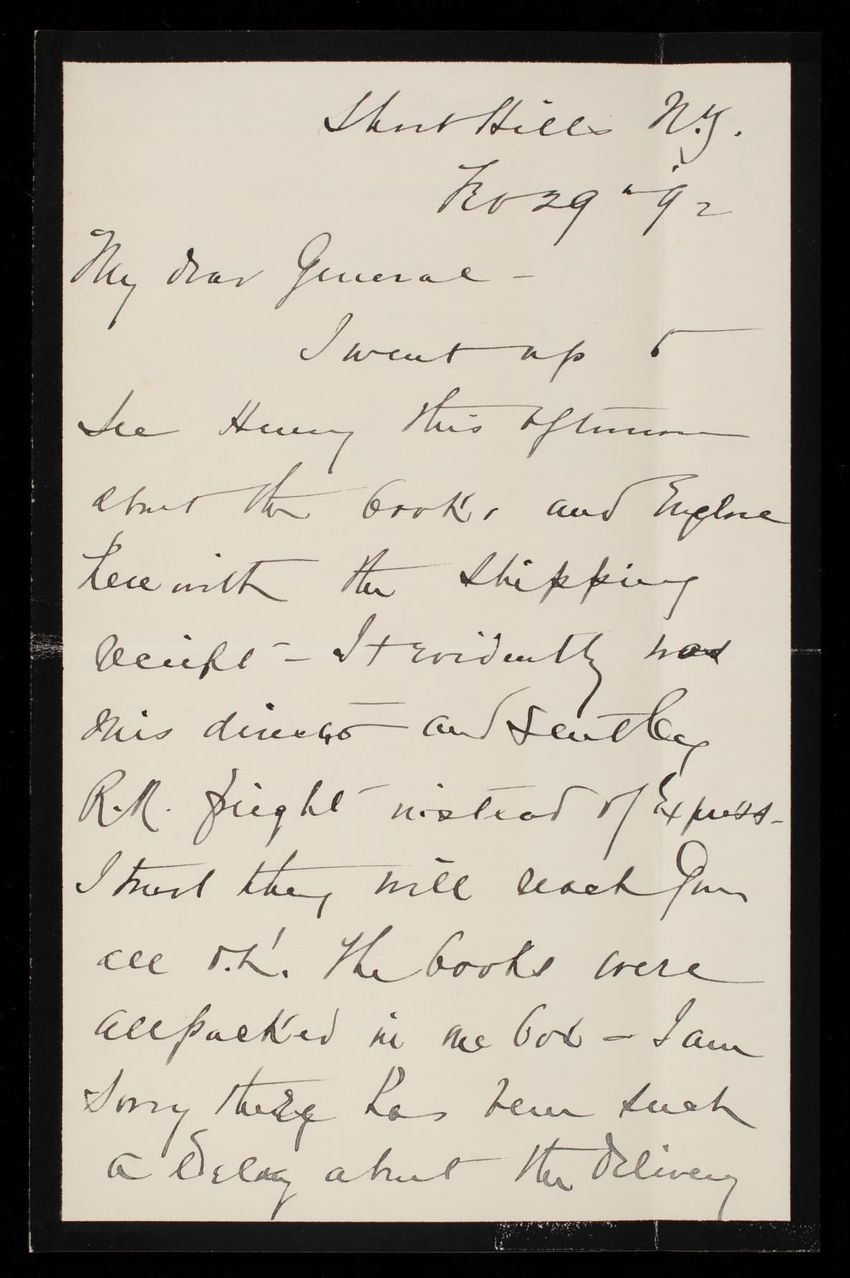 Short Hills N.J.
Feb 29" 92
My dear General -
I went up to
see Henry this afternoon
about the books and Enclose
herewith the shipping
receipt - It evidently was
mis directed and sent by
R.R. freight instead of Express -
I trust they will reach you
all O.K. The books were
all packed in one box - I am
sorry there has been such
a delay about the delivery